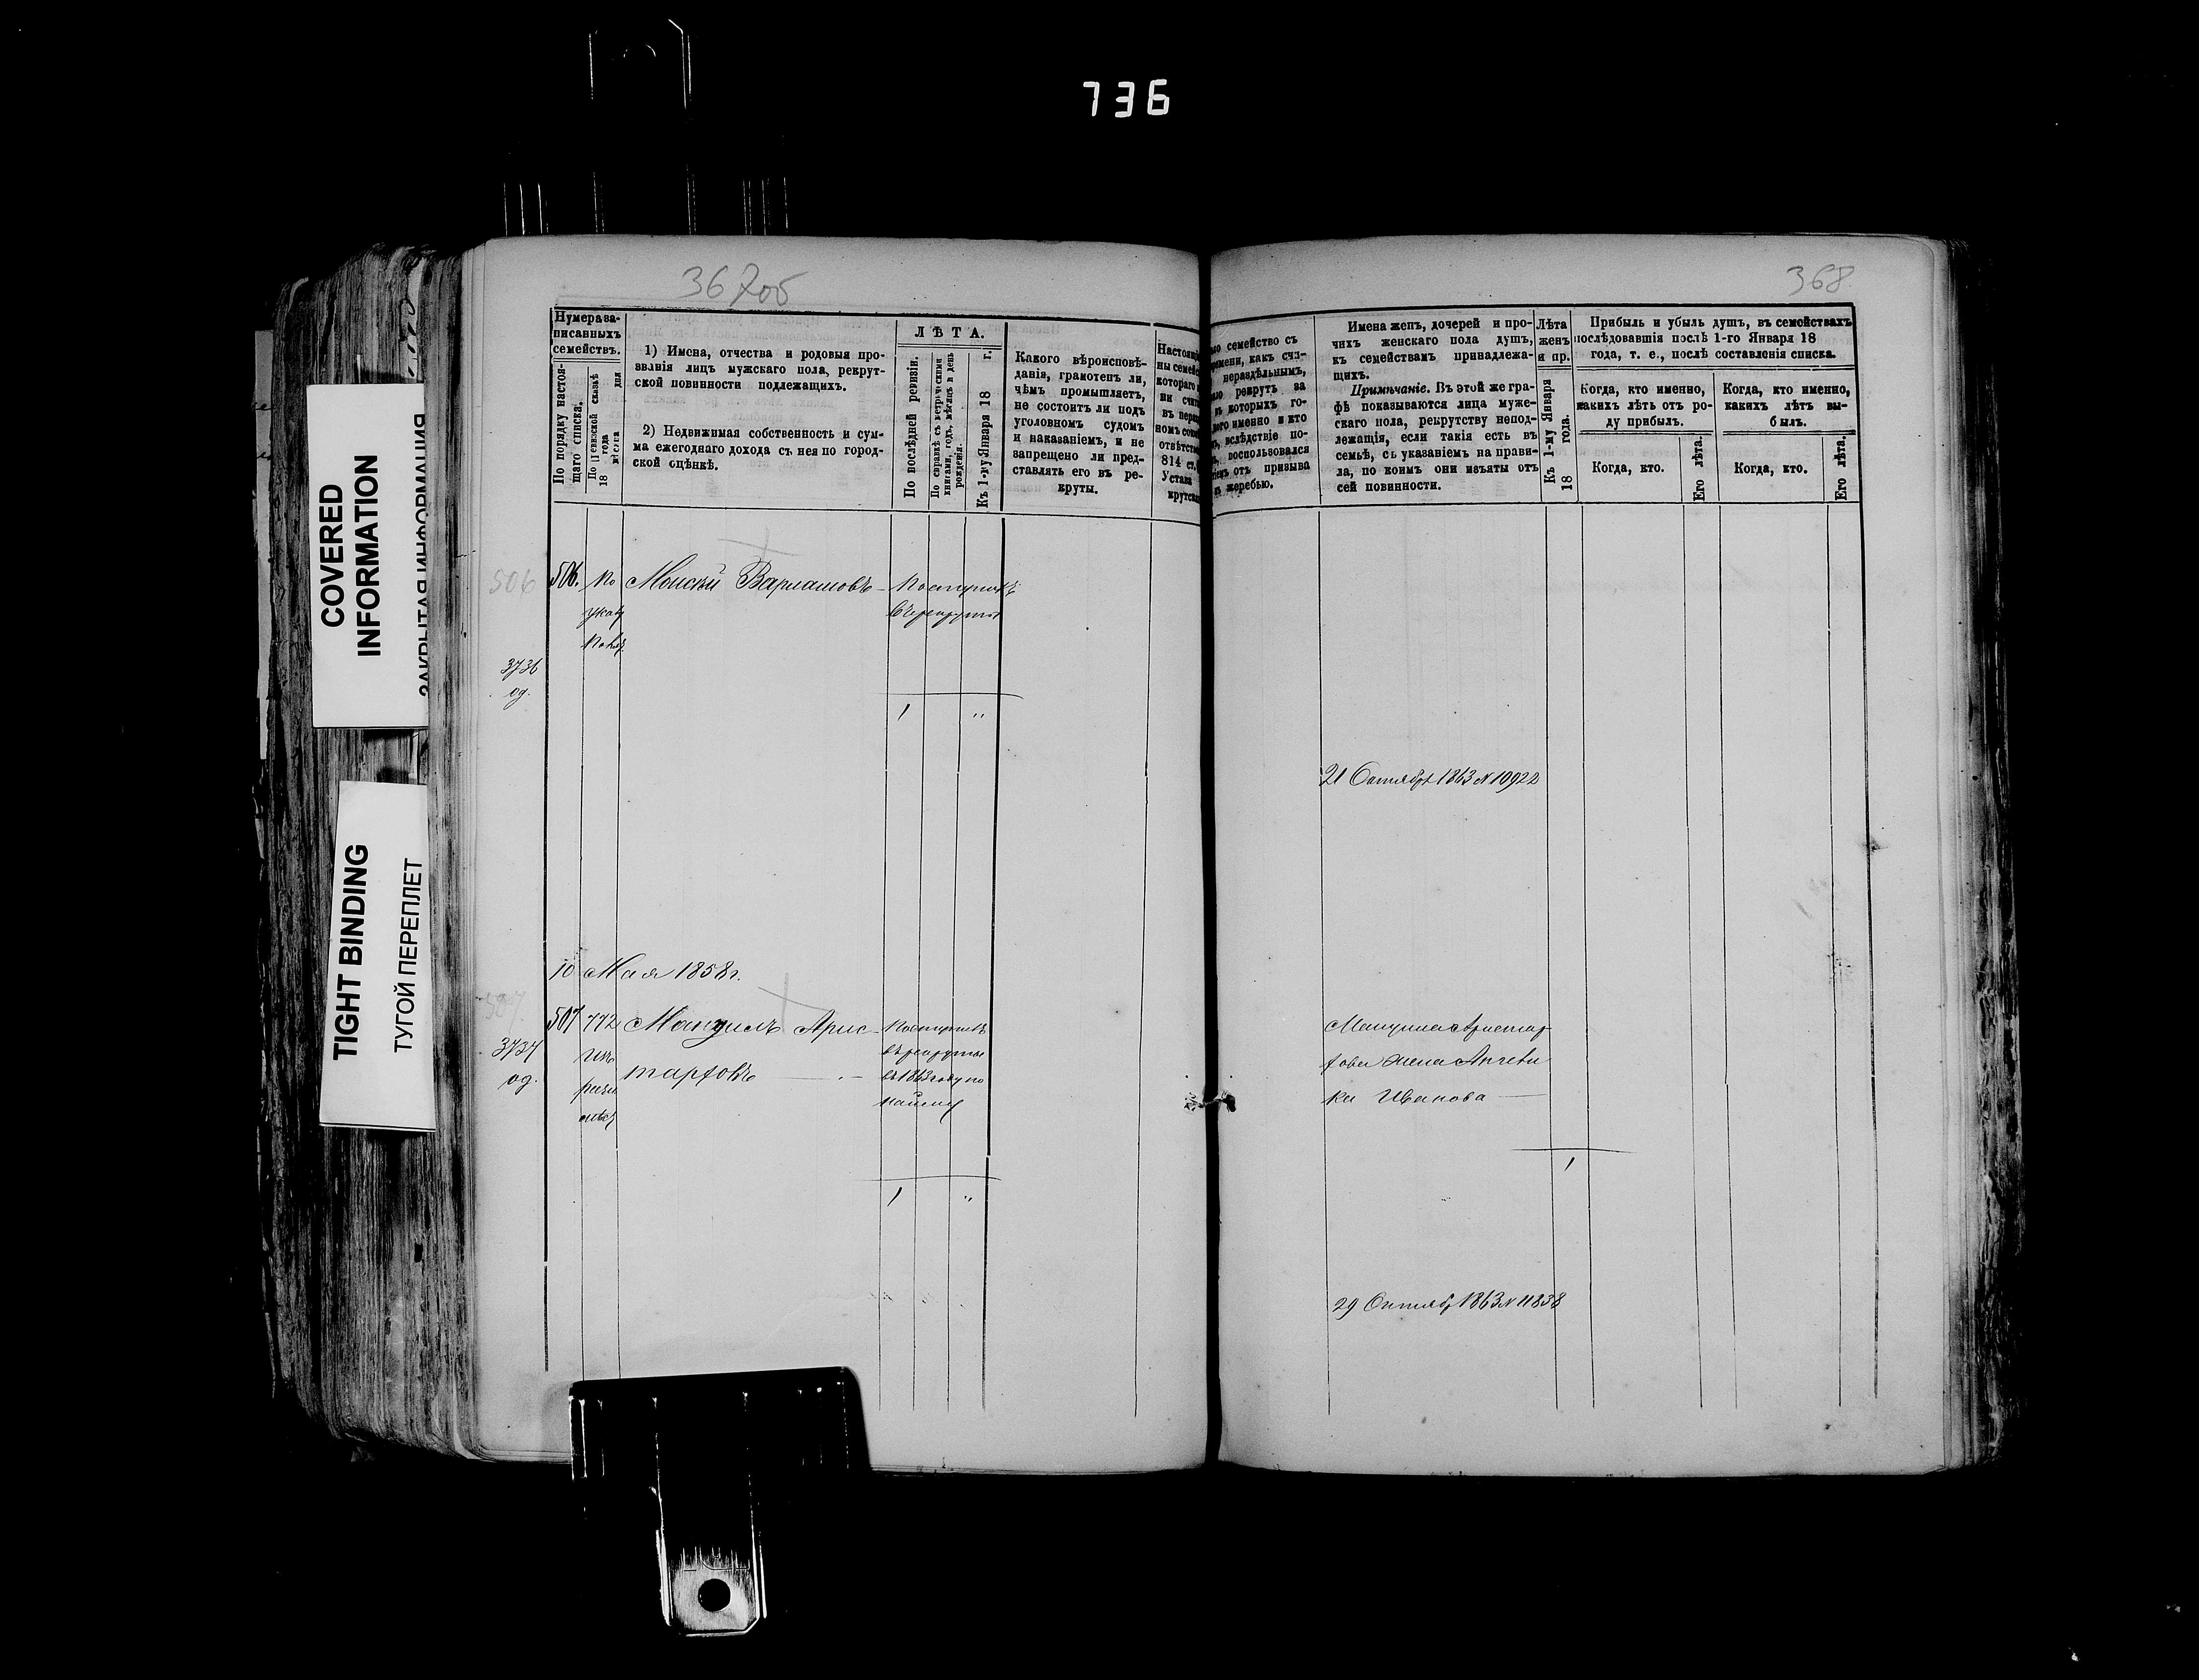 736
COVERED
INFORMATION
ЗАКРЫТАЯ ИНФОРМАЦИЯ
TIGHT BINDING
ТУГОЙ ПЕРЕПЛЕТ
367об
Нумера за-
писанныхъ
семействъ.
По порядку настоя-
щаго списка.
По Ревизской сказкѣ
18 года
мѣсяца дня
1) Имена, отчества и родовыя про-
званія лицъ мужскаго пола, рекрут-
ской повинности подлежащихъ.
2) Недвижимая собственность и сум-
ма ежегоднаго дохода съ нея по город-
ской оцѣнкѣ.
ЛѢТА.
По послѣдней ревизіи.
По справкѣ съ метрическими
книгами, годъ, мѣсяцъ и день
рожденія.
Къ 1-му Января 18 г.
Какого вѣроисповѣ-
данія, грамотенъ ли,
чѣмъ промышляетъ,
не состоитъ ли подъ
уголовномъ судомъ
и наказаніемъ, и не
запрещено ли пред-
ставлять его въ ре-
круты.
Настоящ
ны семейс
котораго
ни счит
въ перв
номъ сос
отвѣтств
814 ст.
Устава
крутска
506
506.
По
указу
Моисей Варламовъ
Поступилъ
въ рекруты
3736
од.
1 "
10 Мая 1858 г.
507.
507 772
Мануилъ Арис-
тарховъ
Поступилъ
въ рекруты
въ 1863 году по
найму
3737
од.
Изъ
1 "
368.
семейство съ
времени, какъ счи-
нераздѣльнымъ,
рекрутъ за
которыхъ го-
именно и кто
вслѣдствіе по-
воспользовался
отъ призыва
жеребью.
Имена женъ, дочерей и про-
чихъ женскаго пола душъ,
къ семействамъ принадлежа-
щихъ.
Примѣчаніе. Въ этой же гра-
фѣ показываются лица муже-
скаго пола, рекрутству непод-
лежащія, если такія есть въ
семьѣ, съ указаніемъ на прави-
ла, по коимъ они изъяты отъ
сей повинности.
Лѣта
женъ
и пр.
Къ 1-му Января
18 года.
Прибыль и убыль душъ, въ семействахъ
послѣдовавшія послѣ 1-го Января 18
года, т. е., послѣ составленія списка.
Когда, кто именно,
какихъ лѣтъ отъ ро-
ду прибылъ.
Когда, кто именно,
какихъ лѣтъ вы-
былъ.
Когда, кто.
Его лѣта.
Когда, кто.
Его лѣта.
21 Октября 1863 № 10922
Мануила Аристар-
хова жена Анжели-
ка Иванова
1
29 Октябр 1863 № 11838